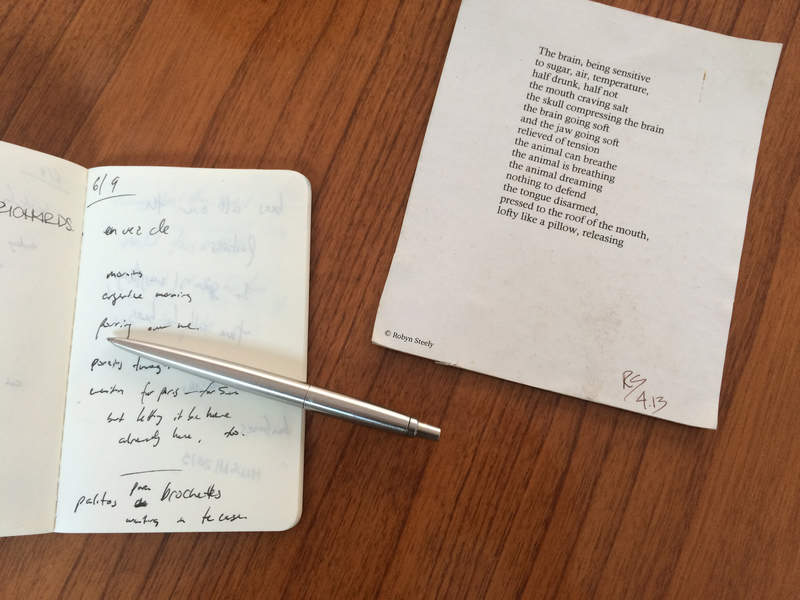 RICHARDS.
6/9
en vez de
morning
argentine morning
pouring over me.
waiting for paris — for Sun
but letting it be here
already here, too.
palitos para brochettes
de
waiting in
The brain, being sensitive
to sugar, air, temperature,
half drunk, half not
the mouth craving salt
the skull compressing the brain
the brain going soft
and the jaw going soft
relieved of tension
the animal can breathe
the animal is breathing
the animal dreaming
nothing to defend
the tongue disarmed,
pressed to the roof of the mouth,
lofty like a pillow, releasing
© Robyn Steely
RS/4.13